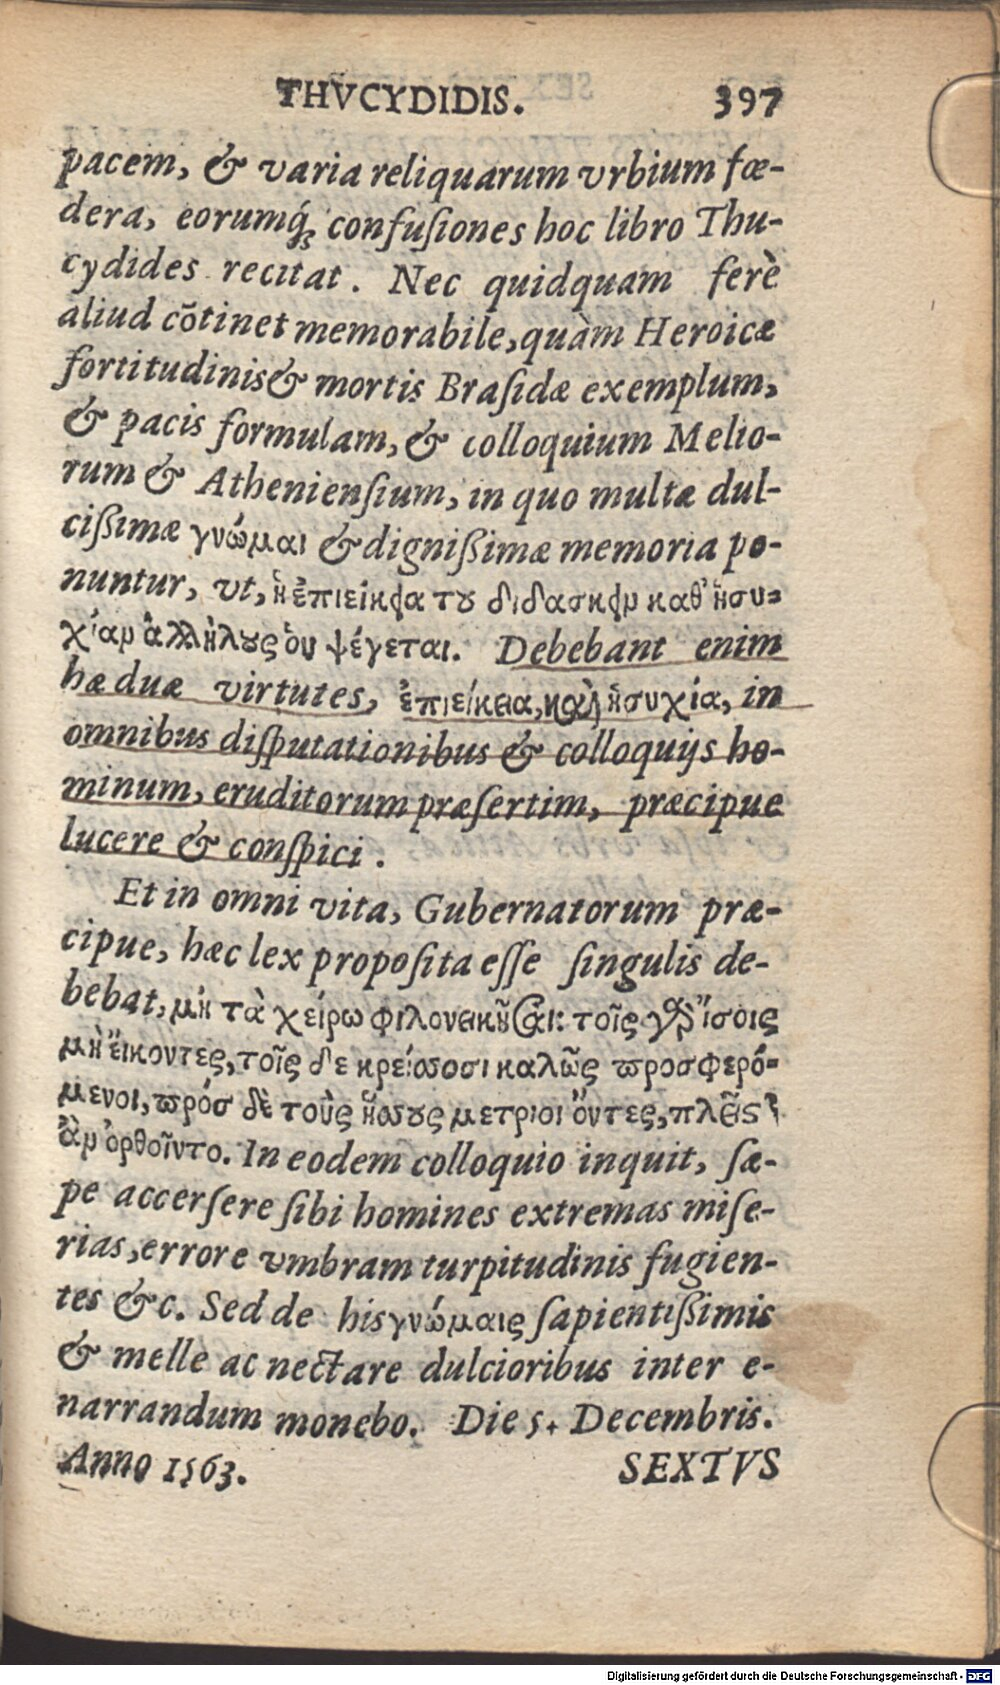 THVCYDIDIS. 397
pacem, & varia reliquarum vrbium fœ-
dera, eorumq́ꝫ confuſiones hoc libro Thu-
cydides recitat. Nec quidquam ferè
aliud cõtinet memorabile, quàm Heroicæ
fortitudinis & mortis Braſidæ exemplum,
& pacis formulam, & colloquium Melio-
rum & Athenienſium, in quo multæ dul-
cißimæ γνώμαι & dignißimæ memoria po-
nuntur, vt, ἡ ἐπιείκεια τοῦ διδάσκειν καθ' ἡσυ-
χίαν ἀλλήλους ὀυ ψέγεται. Debebant enim
hæ duæ virtutes, ἐπιείκεια, καὶ ἡσυχία, in
omnibus diſputationibus & colloquijs ho-
minum, eruditorum præſertim, præcipue
lucere & conſpici.
Et in omni vita, Gubernatorum præ-
cipue, hæc lex propoſita eſſe ſingulis de-
bebat, μὴ τὰ χείρω φιλονεικῆσαι: τοῖς γὰρ ἴσοις
μὴ ἔικοντες, τοῖς δε κρείσσοσι καλῶς προσφερό-
μενοι, πρός δὲ τοὺς ἥσσους μετριοι ὄντες, πλεῖστ'
ἂν ὀρθοῖντο. In eodem colloquio inquit, ſæ-
pe accerſere ſibi homines extremas miſe-
rias, errore vmbram turpitudinis fugien-
tes &c. Sed de his γνώμαις ſapientißimis
& melle ac nectare dulcioribus inter e-
narrandum monebo. Die 5. Decembris.
Anno 1563. SEXTVS
Digitalisierung gefördert durch die Deutsche Forschungsgemeinschaft - DFG